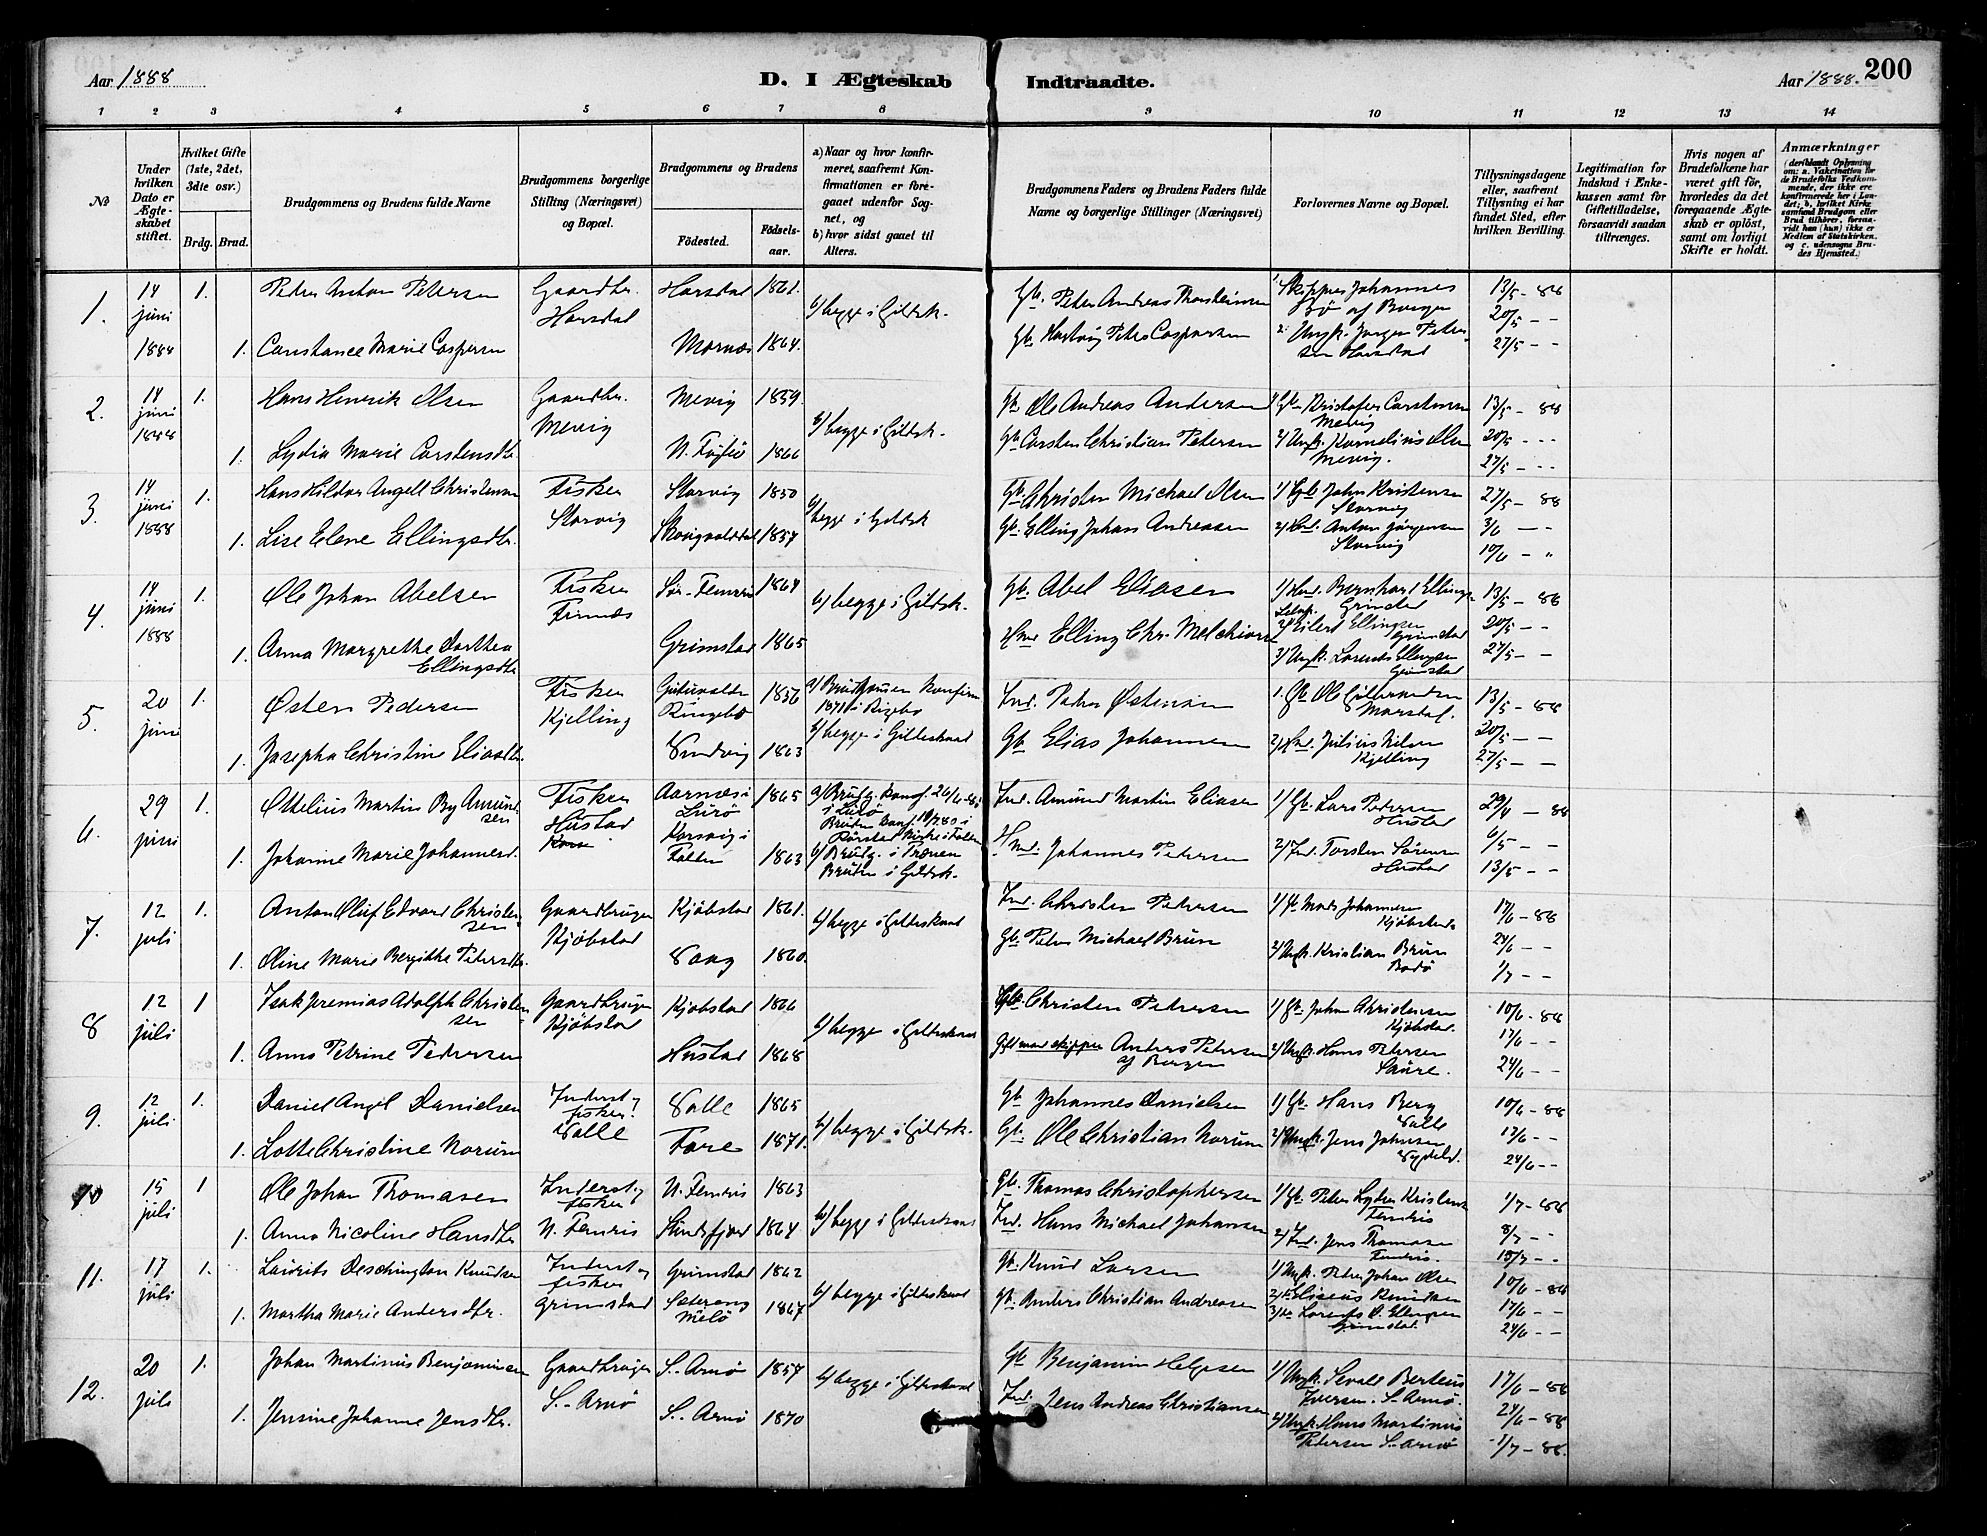 Aar 1888
D. I Ægteskab
Indtraadte.
Aar 1888.
200
1 2 3 4 5 6 7 8 9 10 11 12 13 14
No
Under hvilken Dato er Ægteskabet stiftet.
Hvilket Gifte (1ste, 2det, 3die osv.)
Brdg. Brud.
Brudgommens og Brudens fulde Navne
Brudgommens borgerlige Stilling (Næringsvei) og Bopæl.
Brudgommens og Brudens
Födested.
Födselsaar.
a) Naar og hvor konfirmeret, saafremt Konfirmationen er foregaaet udenfor Sognet, og
b) hvor sidst gaaet til Alters.
Brudgommens Faders og Brudens Faders fulde Navne og borgerlige Stillinger (Næringsvei)
Forlovernes Navne og Bopæl.
Tillysningsdagene eller, saafremt Tillysning ei har fundet Sted, efter hvilken Bevilling.
Legitimation for Indskud i Enkekassen samt for Giftetilladelse, forsaavidt saadan tiltrænges.
Hvis nogen af Brudefolkene har været gift för, hvorledes da det foregaaende Ægteskab er oplöst, samt om lovligt Skifte er holdt.
Anmærkninger
(deriblandt Oplysning om: a. Vakcination for de Brudefolks Vedkommende, der ikke ere konfirmerede her i Landet; b. hvilket Kirkesamfund Brudgom eller Brud tilhörer, forsaavidt han (hun) ikke er Medlem af Statskirken, og c. udensogns Brudes Hjemsted.)
1. 14 juni 1888 1. Peder Anton Petersen Gaardbr. Horsdal Horsdal 1861. b) begge i Gildsk. Gb. Peter Andreas Thorsteinsen 1. Skipper Johannes Bö af Bergen 13/5 - 88
20/5 - -
1. Constance Marie Caspersen Mornæs 1864. Gb. Hartvig Peter Caspersen 2. Ungk. Jørgen Petersen Horsdal 27/5 - -
2. 14 juni 1888 1. Hans Henrik Olsen Gaardbr. Mevig Mevig 1859. b) begge i Gildsk. Gb. Ole Andreas Andersen 1) Gb. Kristofer Carstensen Mevig 13/5 - 88
1. Lydia Marie Carstensdtr. N. Fuglö 1866 Gb. Carsten Christian Petersen 2) Ungk. Kornelius Olsen Mevig. 20/5 - -
27/5 - -
3. 14 juni 1888 1. Hans Hildor Angell Christensen Fisker Storvig Storvig 1850 b) begge i Gildsk Gb. Christen Michael Olsen 1) Gb. John Kristensen Storvig 27/5 - 88
1. Lise Elene Ellingsdtr. 1857 Gb. Elling Johan Andreasen 2) Ind. Anton Jørgensen Storvig 3/6 - -
10/6 - "
4. 14 juni 1888 1. Ole Johan Abelsen Fisker Sör-Femris 1864 b) begge i Gildsk. Gb. Abel Eliasen 1) Bernhard Ellingsen 13/5 - 88
1. Anna Margrethe Dorthea Ellingsdtr Grimstad 1865 Elling Chr. Melchiorsen 2) Eilert Ellingsen Grimstad 20/5 - -
3) Ungk. Lorents Ellingsen Grimstad 27/5 - -
5 20 juni 1. Østen Pedersen Fisker Kjelling Ringebo 1856 a) Brudgommen konfirm 1871 i Ringebo Ind. Peder Østensen 1. Gb. Ole 13/5 - 88
1. Josepha Christine Eliasdtr. Sundvig 1863 b) begge i Gildeskaal Gb. Elias Johannesen 2) Ind. Julius Nilsen Kjelling 20/5 - -
27/5 - -
6. 29 juni 1. Ottelius Martin By Amundsen Fisker Hustad Aarnæs i Lurö 1865 a) Brudg. konf. i Lurö Ind. Amund Martin Eliasen 1) Gb. Lars Pedersen Hustad 29/4 - 88
1. Johanne Marie Johannesd. Korsvig i Folden 1863 b) Brudg. i Trænen Bruden i Gildsk. Johannes Petersen 2) Ind. Torsten Sörensen Hustad 6/5 - -
13/5 - -
7. 12 juli 1. Anton Oluf Edvard Christensen Gaardbruger Kjöbstad Kjöbstad 1861. b) begge i Gildeskaal Ind. Christen Petersen 1) Gb. Mads Johannesen Kjöbstad. 17/6 - 88
1. Oline Marie Bergithe Petersdtr. Vaag 1860. Gb. Peter Michael Brun 2) Ungk. Kristian Brun Bodö 24/6 - -
1/7 - -
8 12 juli 1 Isak Jeremias Adolph Christensen Gaardbruger Kjöbstad Kjöbstad 1866 b) begge i Gildeskaal Gb. Christen Petersen 1) Gb. Johan Christensen Kjöbstad. 10/6 - 88
17/6 - -
1. Anna Petrine Pedersen Hustad 1868 skipper Anders Petersen af Bergen 2) Ungk. Hans Petersen Saure. 24/6 - -
9. 12 juli 1. Daniel Angel Danielsen Inderst og fisker Valle Valle 1865 b) begge i Gildsk. Gb. Johannes Danielsen 1) Gb. Hans Berg Valle 10/6 - 88
1. Lotte Christine Norum Fore 1871. Gb. Ole Christian Norum 2) Ungk. Jens Johnsen 17/6 - -
24/6 - -
10 15 juli 1 Ole Johan Thomasen Inderst og fisker N. Femris N. Femris 1863 b) begge i Gildeskaal Gb. Thomas Christophersen 1) Gb. Peter Lyder Kristensen Femris 1/7 - 88
1. Anna Nicoline Hansdtr 1864 Ind. Hans Michael Johansen 2) Ind. Jens Thomasen Femris. 8/7 - -
15/7 - -
11. 17 juli 1. Laurits Deschington Knudsen Inderst og fisker Grimstad Grimstad 1862 b) begge i Gildeskaal Gb. Knud Larsen 1) Ungk. Peder Johan Olsen 10/6 - 88
1. Martha Marie Andersdtr. Melö 1867 Gb. Anders Christian Andreasen 2) Eliseus Knudsen 17/6 - -
3) Lorents O. Ellingsen Grimstad. 24/6 - -
12. 20 juli 1. Johan Martinus Benjaminsen Gaardbruger S. Arnö S. Arnö 1857 b) begge i Gildeskaal Gb. Benjamin Helgesen 1) Ungk. Sevald Berteus Iversen. S. Arnö. 17/6 - 88
1. Jensine Johanne Jensdtr. S. Arnö 1870 Ind. Jens Andreas Christiansen 2) Ungk. Hans Martinus Petersen S. Arnö 24/6 - 88
1/7 - 88.